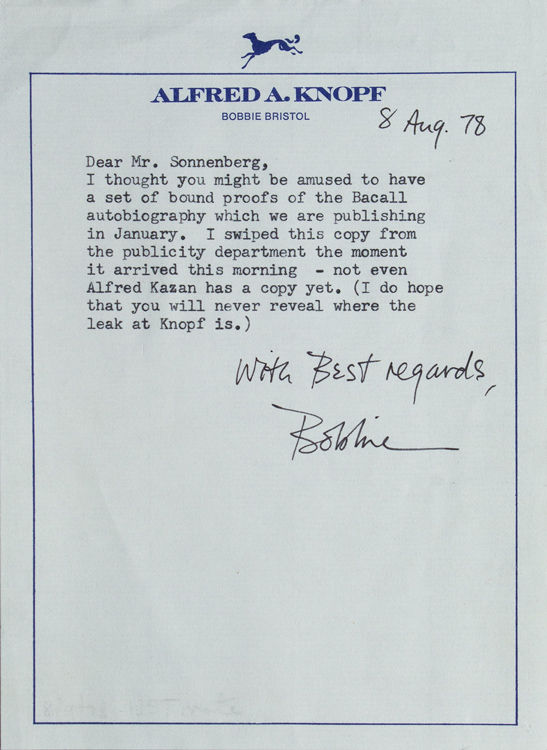 ALFRED A. KNOPF
BOBBIE BRISTOL
8 Aug. 78
Dear Mr. Sonnenberg,
I thought you might be amused to have
a set of bound proofs of the Bacall
autobiography which we are publishing
in January. I swiped this copy from
the publicity department the moment
it arrived this morning - not even
Alfred Kazan has a copy yet. (I do hope
that you will never reveal where the
leak at Knopf is.)
With Best regards,
Bobbie